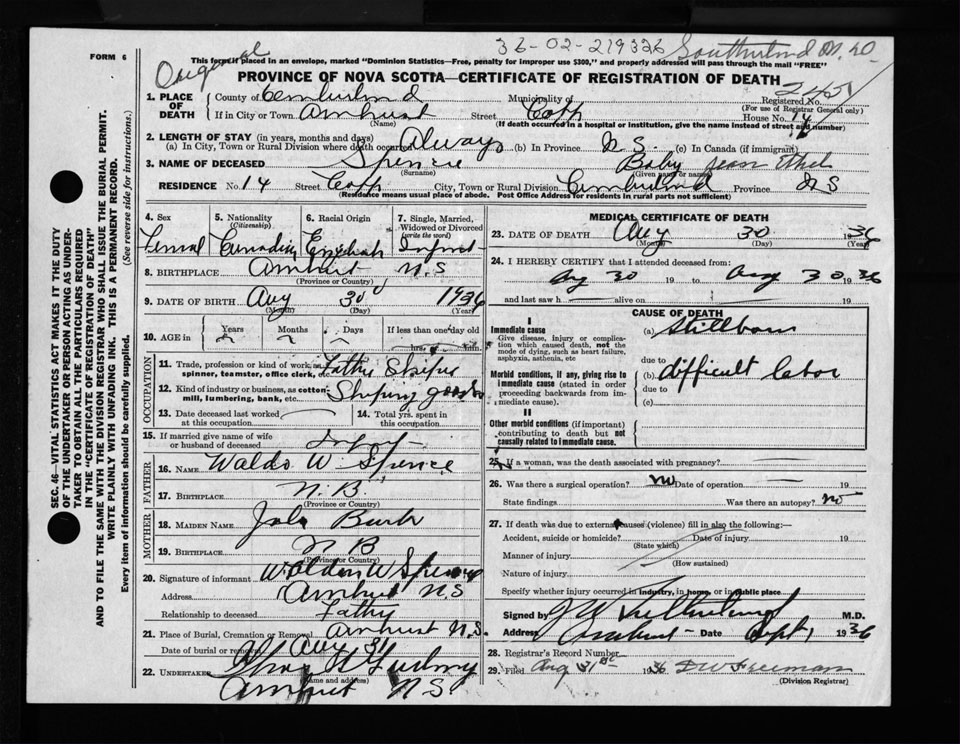 FORM 6
Original
36-02-219326
This form if placed in an envelope, marked "Dominion Statistics—Free, penalty for improper use $300," and properly addressed will pass through the mail "FREE"
PROVINCE OF NOVA SCOTIA—CERTIFICATE OF REGISTRATION OF DEATH
1. PLACE OF DEATH
County of Cumberland Municipality of Registered No.
(For use of Registrar General only)
If in City or Town Amherst Street Copp House No. 14
(Name) (If death occurred in a hospital or institution, give the name instead of street and number)
2. LENGTH OF STAY (in years, months and days)
(a) In City, Town or Rural Division where death occurred Always (b) In Province N.S. (c) In Canada (if immigrant)
3. NAME OF DECEASED Spence Baby Jean Ethel
(Surname) (Given name or names)
RESIDENCE No. 14 Street Copp City, Town or Rural Division Cumberland Province N S
(Residence means usual place of abode. Post Office Address for residents in rural parts not sufficient)
SEC. 46—VITAL STATISTICS ACT MAKES IT THE DUTY
OF THE UNDERTAKER OR PERSON ACTING AS UNDER-
TAKER TO OBTAIN ALL THE PARTICULARS REQUIRED
IN THE "CERTIFICATE OF REGISTRATION OF DEATH"
AND TO FILE THE SAME WITH THE DIVISION REGISTRAR WHO SHALL ISSUE THE BURIAL PERMIT.
WRITE PLAINLY WITH UNFADING INK. THIS IS A PERMANENT RECORD.
Every item of information should be carefully supplied. (See reverse side for instructions.)
4. Sex 5. Nationality 6. Racial Origin 7. Single, Married,
(Citizenship) Widowed or Divorced
(write the word)
Femal Canadian English Infant
8. BIRTHPLACE Amherst N.S
(Province or Country)
9. DATE OF BIRTH Aug 30 1936
(Month) (Day) (Year)
10. AGE in Years Months Days If less than one day old
hrs. min.
OCCUPATION
11. Trade, profession or kind of work, as
spinner, teamster, office clerk, etc. Father Shiper
12. Kind of industry or business, as cotton
mill, lumbering, bank, etc. Shiping goods
13. Date deceased last worked
at this occupation
14. Total yrs. spent in
this occupation
15. If married give name of wife
or husband of deceased Infant
FATHER
16. NAME Waldo W. Spence
17. BIRTHPLACE N.B.
(Province or Country)
MOTHER
18. MAIDEN NAME
19. BIRTHPLACE N B
(Province or Country)
20. Signature of informant Waldon W Spence
Address Amherst N.S
Relationship to deceased Father
21. Place of Burial, Cremation or Removal Amherst N.S.
Date of burial or removal Aug 31
22. UNDERTAKER
(Name and address)
Amherst N S
MEDICAL CERTIFICATE OF DEATH
23. DATE OF DEATH Aug 30 1936
(Month) (Day) (Year)
24. I HEREBY CERTIFY that I attended deceased from:
Aug 30 19 to Aug 30 1936
and last saw h alive on 19
CAUSE OF DEATH
I
Immediate cause
Give disease, injury or complica-
tion which caused death, not the
mode of dying, such as heart failure,
asphyxia, asthenia, etc
(a) Stillborn
due to
Morbid conditions, if any, giving rise to
immediate cause (stated in order
proceeding backwards from im-
mediate cause).
(b) difficult labor
due to
(c)
II
Other morbid conditions (if important)
contributing to death but not
causally related to immediate cause.
25. If a woman, was the death associated with pregnancy?
26. Was there a surgical operation? no Date of operation 19
State findings Was there an autopsy? no
27. If death was due to external causes (violence) fill in also the following:—
Accident, suicide or homicide? Date of injury 19
(State which)
Manner of injury
(How sustained)
Nature of injury
Specify whether injury occurred in industry, in home, or in public place
Signed by M.D.
Address Amherst Date Sept 1 1936
28. Registrar's Record No.
29. Filed Aug 31st 1936 D W Freeman
(Division Registrar)